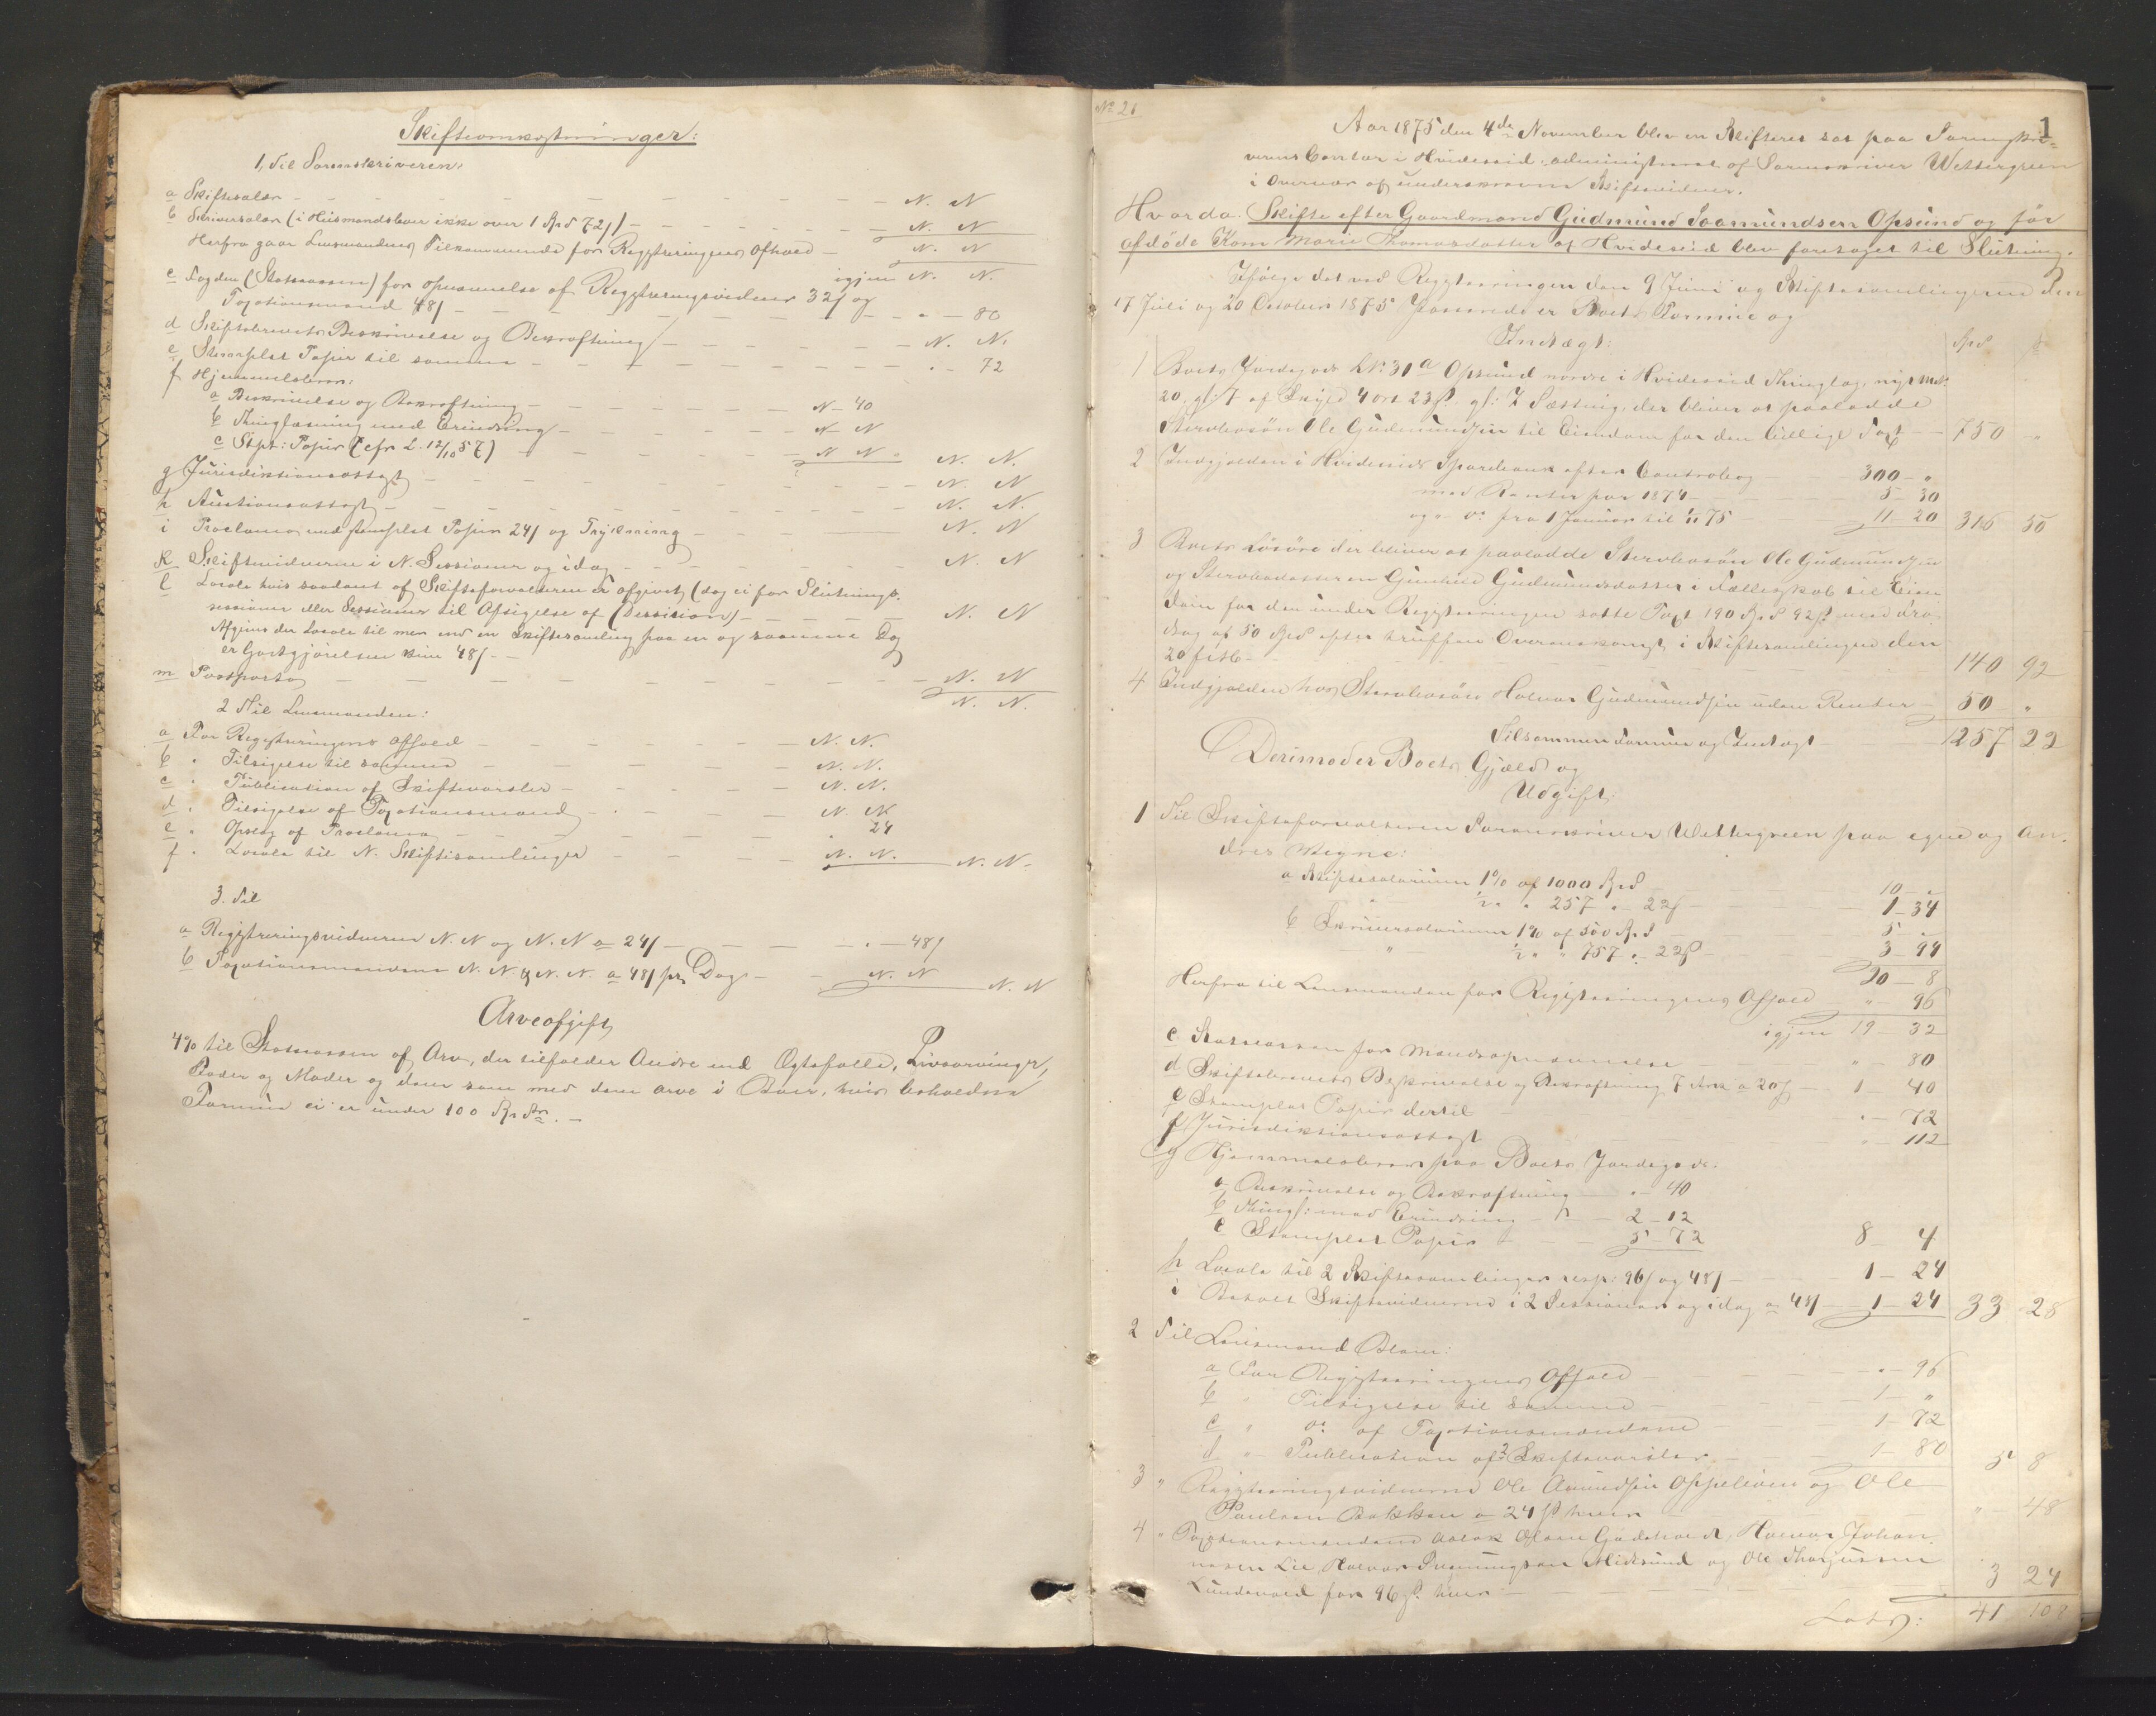 Skifteomkostninger:
1, Til Sorenskriveren:
a Skiftesalær — N. N
b Skriversalær (i Husmandsboer ikke over 1 Spd 72 ß) — N. N
Herfra gaar Lensmandens Tilkommende for Registreringens Afhold — N. N
igjen N. N.
c Fogden (Statskassen) for Opnævnelse af Registreringsvidner 32 ß og
Taxationsmænd 48 ß — " — 80
d Skiftebrevets Beskrivelse og Bekræftning — N. N.
e Stemplet Papir til samme — " — 72
f Hjemmelsbrev:
a Beskrivelse og Bekræftning — N — 40
b Thinglæsning med Erindring — N — N
c Stpt: Papir (cfr L. 12/10 57) — N N " N. N.
g Jurisdiktionsattest — N. N
h Auktionsattest — N. N.
i Proclama med stemplet Papir 24 ß og Trykning — N. N
k Skiftevidnerne i N. Sessioner og idag — N. N
l Locale hvis saadant af Skifteforvalteren er afgivet (dog ei for Slutnings-
sessioner eller Sessioner til Afsigelse af Decision) — N. N
Afgives der Locale til mer end en Skiftesamling paa en og samme Dag
er Godtgjørelsen kun 48 ß —
m Postporto — N. N
N. N.
2 Til Lensmanden:
a For Registreringens Afhold — N. N.
b " Tilsigelse til samme — N. N.
c " Publication af Skiftevarsler — N. N.
d " Tilsigelse af Taxationsmænd — N. N
e " Opslag af Proclama — " 24
f " Locale til N. Skiftesamlinger — N. N. N. N.
3. Til
a Registreringsvidnerne N. N og N. N a 24 ß — " — 48 ß
b Taxationsmændene N. N & N. N. a 48 ß pr Dag — N. N N. N
Arveafgift
4 % til Statskassen af Arv, der tilfalder Andre end Ægtefælle, Livsarvinger,
Fader og Moder og dem som med dem arve i Boer, hvis beholdne
Formue ei er under 100 Spdlr. —
№ 21
1
Aar 1875 den 4de November blev en Skifteret sat paa Sorenskri-
verens Contor i Hvideseid, administreret af Sorenskriver Wettergreen
i Overvær af underskrevne Skiftevidner.
Hvorda: Skifte efter Gaardmand Gudmund Saamundsen Opsund og før
afdøde Kone Marie Thomasdatter af Hvideseid blev foretaget til Slutning.
Ifølge det ved Registreringen den 9 Juni og Skiftesamlingerne den
17 Juli og 20 October 1875 passerede er Boets Formue og
Indtægt: Spd ß
1 Boets Jordegods LNo 31 a Opsund nordre i Hvideseid Thinglag, nyt Mat.
20, gl: 7 af Skyld 4 ort 23 ß gl: Z Sætting, der bliver at paalodde
Stervbosøn Ole Gudmundsen til Eiendom for den lidlige Taxt — 750 "
2 Indgjælden i Hvideseids Sparebank efter Contrabog — 300 — "
med Renter for 1874 — 5 — 30
og " do fra 1 Januar til 1/11 75 — 11 — 20 316 50
3 Boets Løsøre der bliver at paalodde Stervbosøn Ole Gudmundsen
og Stervbodatteren Gunhild Gudmundsdatter i Fællesskab til Eien-
dom for den under Registreringen satte Taxt 190 Spd 92 ß med Fra-
drag af 50 Spd efter truffen Overenskomst i Skiftesamlingen den
20 f: Mb — 140 92
4 Indgjælden hos Stervbosøn Halvor Gudmundsen uden Renter — 50 — "
Tilsammen Formue og Indtægt — 1257 22
Derimod er Boets Gjæld og
Udgift:
1 Til Skifteforvalteren Sorenskriver Wettergreen paa egne og An-
dres Vegne:
a Skiftesalarium 1 % af 1000 Spd — 10 — "
½ " " 257 " 22 ß — 1 — 34
b Skriversalarium 1 % af 500 Spd — 5 — "
" ½ " " 757 " 22 ß — 3 — 94
20 — 8
Herfra til Lensmanden for Registreringens Afhold — " — 96
igjen 19 — 32
c Statskassen for Mændsopnævnelse — " — 80
d Skiftebrevets Beskrivelse og Bekræftning 7 Ark a 20 ß — 1 40
e Stemplet Papir dertil — " — 72
f Jurisdiktionsattest — " — 112
g Hjemmelsbrev paa Boets Jordegods:
a Beskrivelse og Bekræftning — " — 40
b Thingl: med Erindring — 2 — 12
c Stemplet Papir — 5 — 72 8 — 4
h Locale til 2 Skiftesamlinger resp: 96 ß og 48 ß — 1 — 24
i Betalt Skiftevidnerne i 2 Sessioner og idag a 48 ß — 1 — 24 33 28
2 Til Lensmand Blom:
a For Registreringens Afhold — " — 96
b " Tilsigelse til samme — 1 — "
c " do af Taxationsmændene — 1 — 72
d " Publication af 2 Skiftevarsler — 1 — 80 5 8
3 " Registreringsvidnerne Ole Amundsen Oppeliven og Ole
Paulsen Bakken a 24 ß hver — " 48
4 " Taxationsmændene Aslak Olsen Gjødehold, Halvor Johan-
nesen Lie, Halvor Svenungsen Midtsund og Ole Thorjussen
Lundevold for 96 ß hver — 3 24
Lats: 41 108